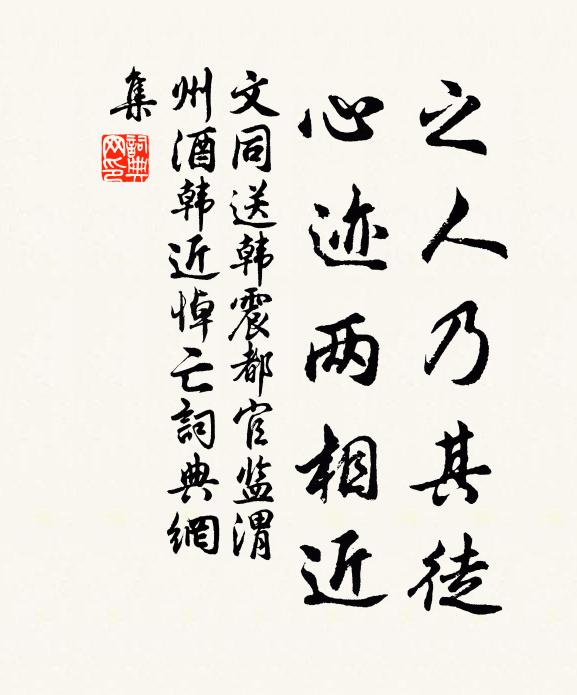 之人乃其徒
心迹两相近
文同送韩震都官监渭
州酒韩近悼亡詞典網
集
詞典
网印